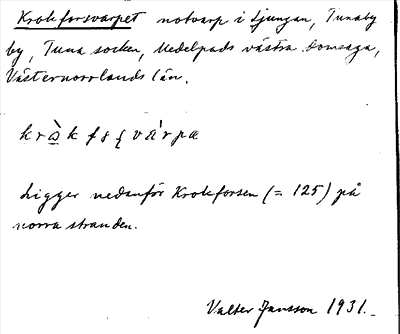 Krokforsvarpet notvarp i Ljungan, Tunaby
by, Tuna socken, Medelpads västra domsaga,
Västernorrlands län.
Ligger nedanför Krokforsen (= 125) på
norra stranden.
Valter Jansson 1931.